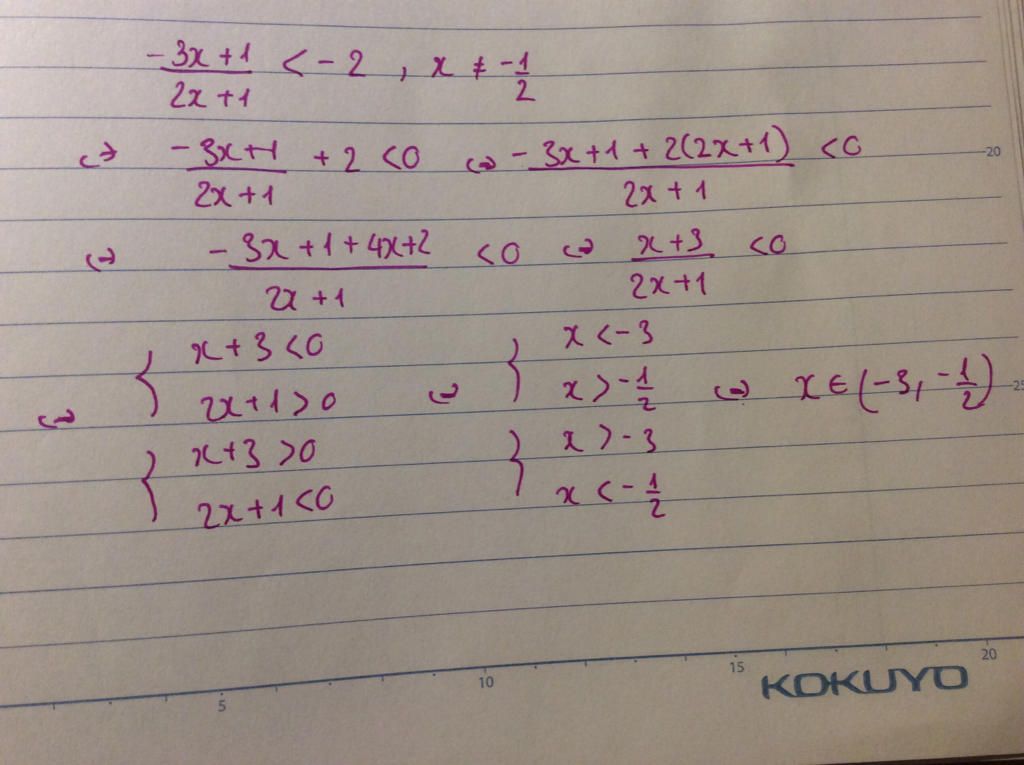 -3x+1/2x+1 < -2 , x ≠ -1/2
⇔ -3x+1/2x+1 + 2 < 0 ⇔ -3x+1+2(2x+1)/2x+1 < 0
20
⇔ -3x+1+4x+2/2x+1 < 0 ⇔ x+3/2x+1 < 0
{ x+3<0 { x<-3
⇔ 2x+1>0 ⇔ x>-1/2 ⇔ x∈(-3,-1/2)
25
{ x+3>0 { x>-3
2x+1<0 x<-1/2
5 10 15 20
KOKUYO